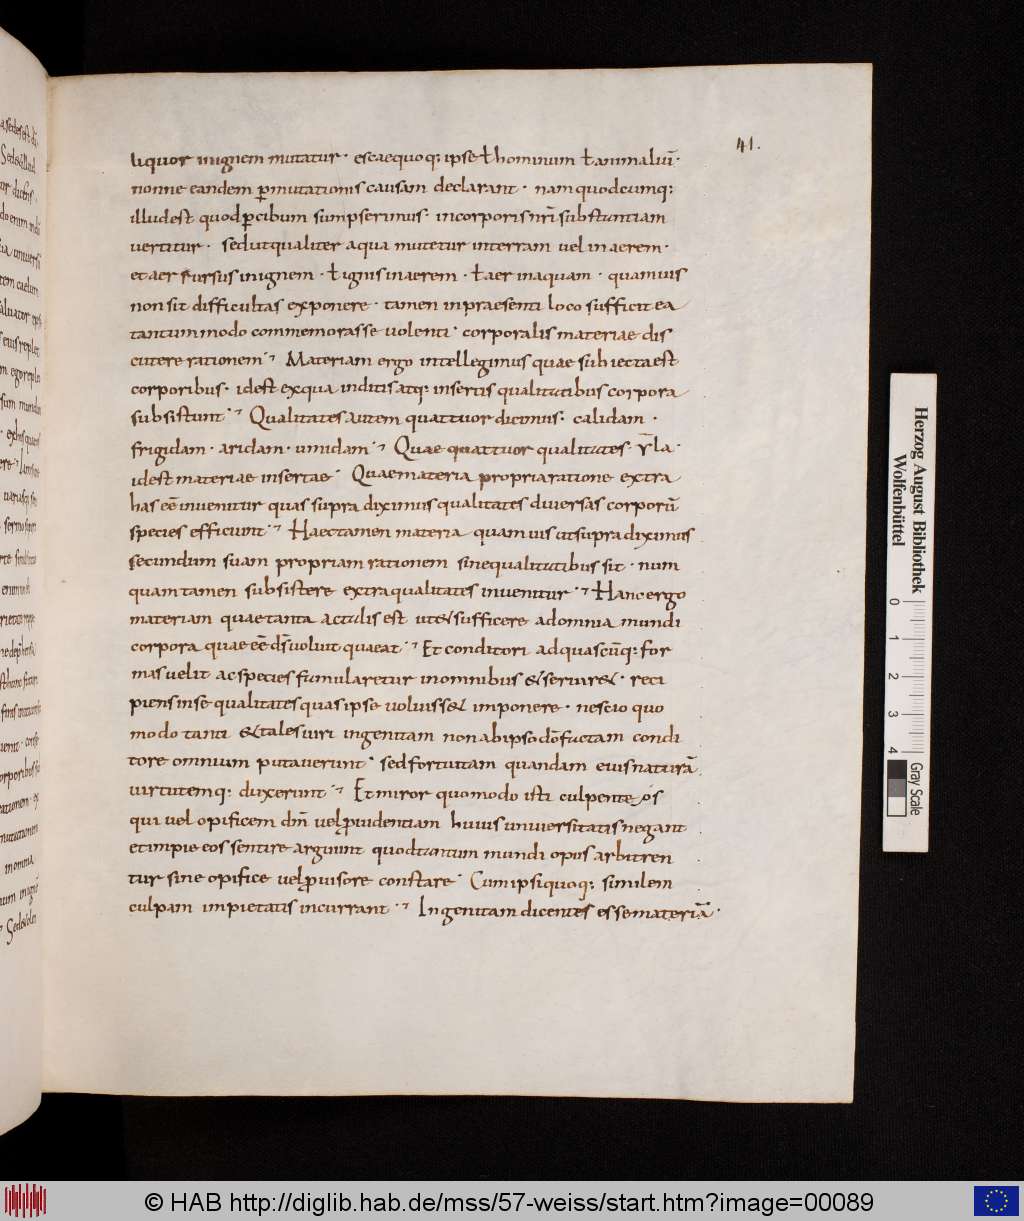 41.
liquor in ignem mutatur · escaequoq: ipse ł hominum ł animaliū ·
nonne eandem ꝑmutationis causam declarant · nam quodcumq:
illud est quod ꝑ cibum sumpserimus · in corporis nr̄i substantiam
vertitur · sed ut qualiter aqua mutetur in terram vel in aerem ·
et aer rursus in ignem · ł ignis in aerem · ł aer in aquam · quamuis
non sit difficultas exponere · tamen in praesenti loco sufficit ea
tantummodo commemorasse uolenti · corporalis materiae dis
cutere rationem · Materiam ergo intellegimus quae subiecta est
corporibus · id est ex qua inditis atq: insertis qualitatibus corpora
subsistunt · Qualitates autem quattuor dicimus : calidam ·
frigidam · aridam · umidam · Quae quattuor qualitates ·
id est materiae insertae · Quae materia propria ratione extra
has eē inuenitur quas supra diximus qualitates diuersas corporū
species efficiunt · Haec tamen materia quamuis ut supra diximus
secundum suam propriam rationem sine qualitatibus sit · num
quam tamen subsistere extra qualitates inuenitur · Hanc ergo
materiam quae tanta ac talis est ut & sufficere ad omnia mundi
corpora quae eē ds̄ voluit quaeat · Et conditori ad quascūq: for
mas uelit ac species famularetur in omnibus & seruir& · reci
piens in se qualitates quas ipse uoluiss& imponere · nescio quo
modo tanti & tales uiri ingenitam non ab ipso dō factam condi
tore omnium putauerunt · sed fortuitam quandam eius naturā
uirtutemq: duxerunt · Et miror quomodo isti culpent eos
qui uel opificem dm̄ uel ꝓuidentiam huius uniuersitatis negant
et impie eos sentire arguunt quod tantum mundi opus arbitren
tur sine opifice uel ꝓuisore constare · Cum ipsi quoq: similem
culpam impietatis incurrant · Ingenitam dicentes esse materiā ·
Herzog August Bibliothek
Wolfenbüttel
0 1 2 3 4
Gray Scale
© HAB http://diglib.hab.de/mss/57-weiss/start.htm?image=00089